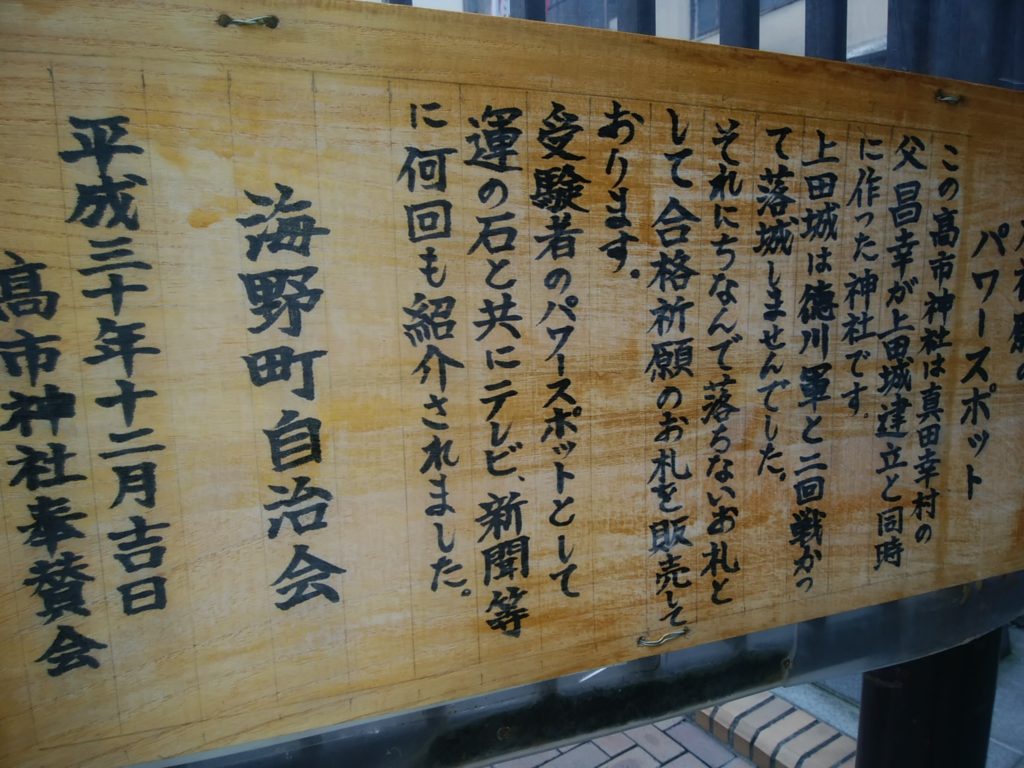 パワースポット
この高市神社は真田幸村の
父昌幸が上田城建立と同時
に作った神社です。
上田城は徳川軍と二回戦かっ
て落城しませんでした。
それにちなんで落ちないお札と
して合格祈願のお札を販売して
おります。
受験者のパワースポットとして
運の石と共にテレビ、新聞等
に何回も紹介されました。
海野町自治会
平成三十年十二月吉日
高市神社奉賛会